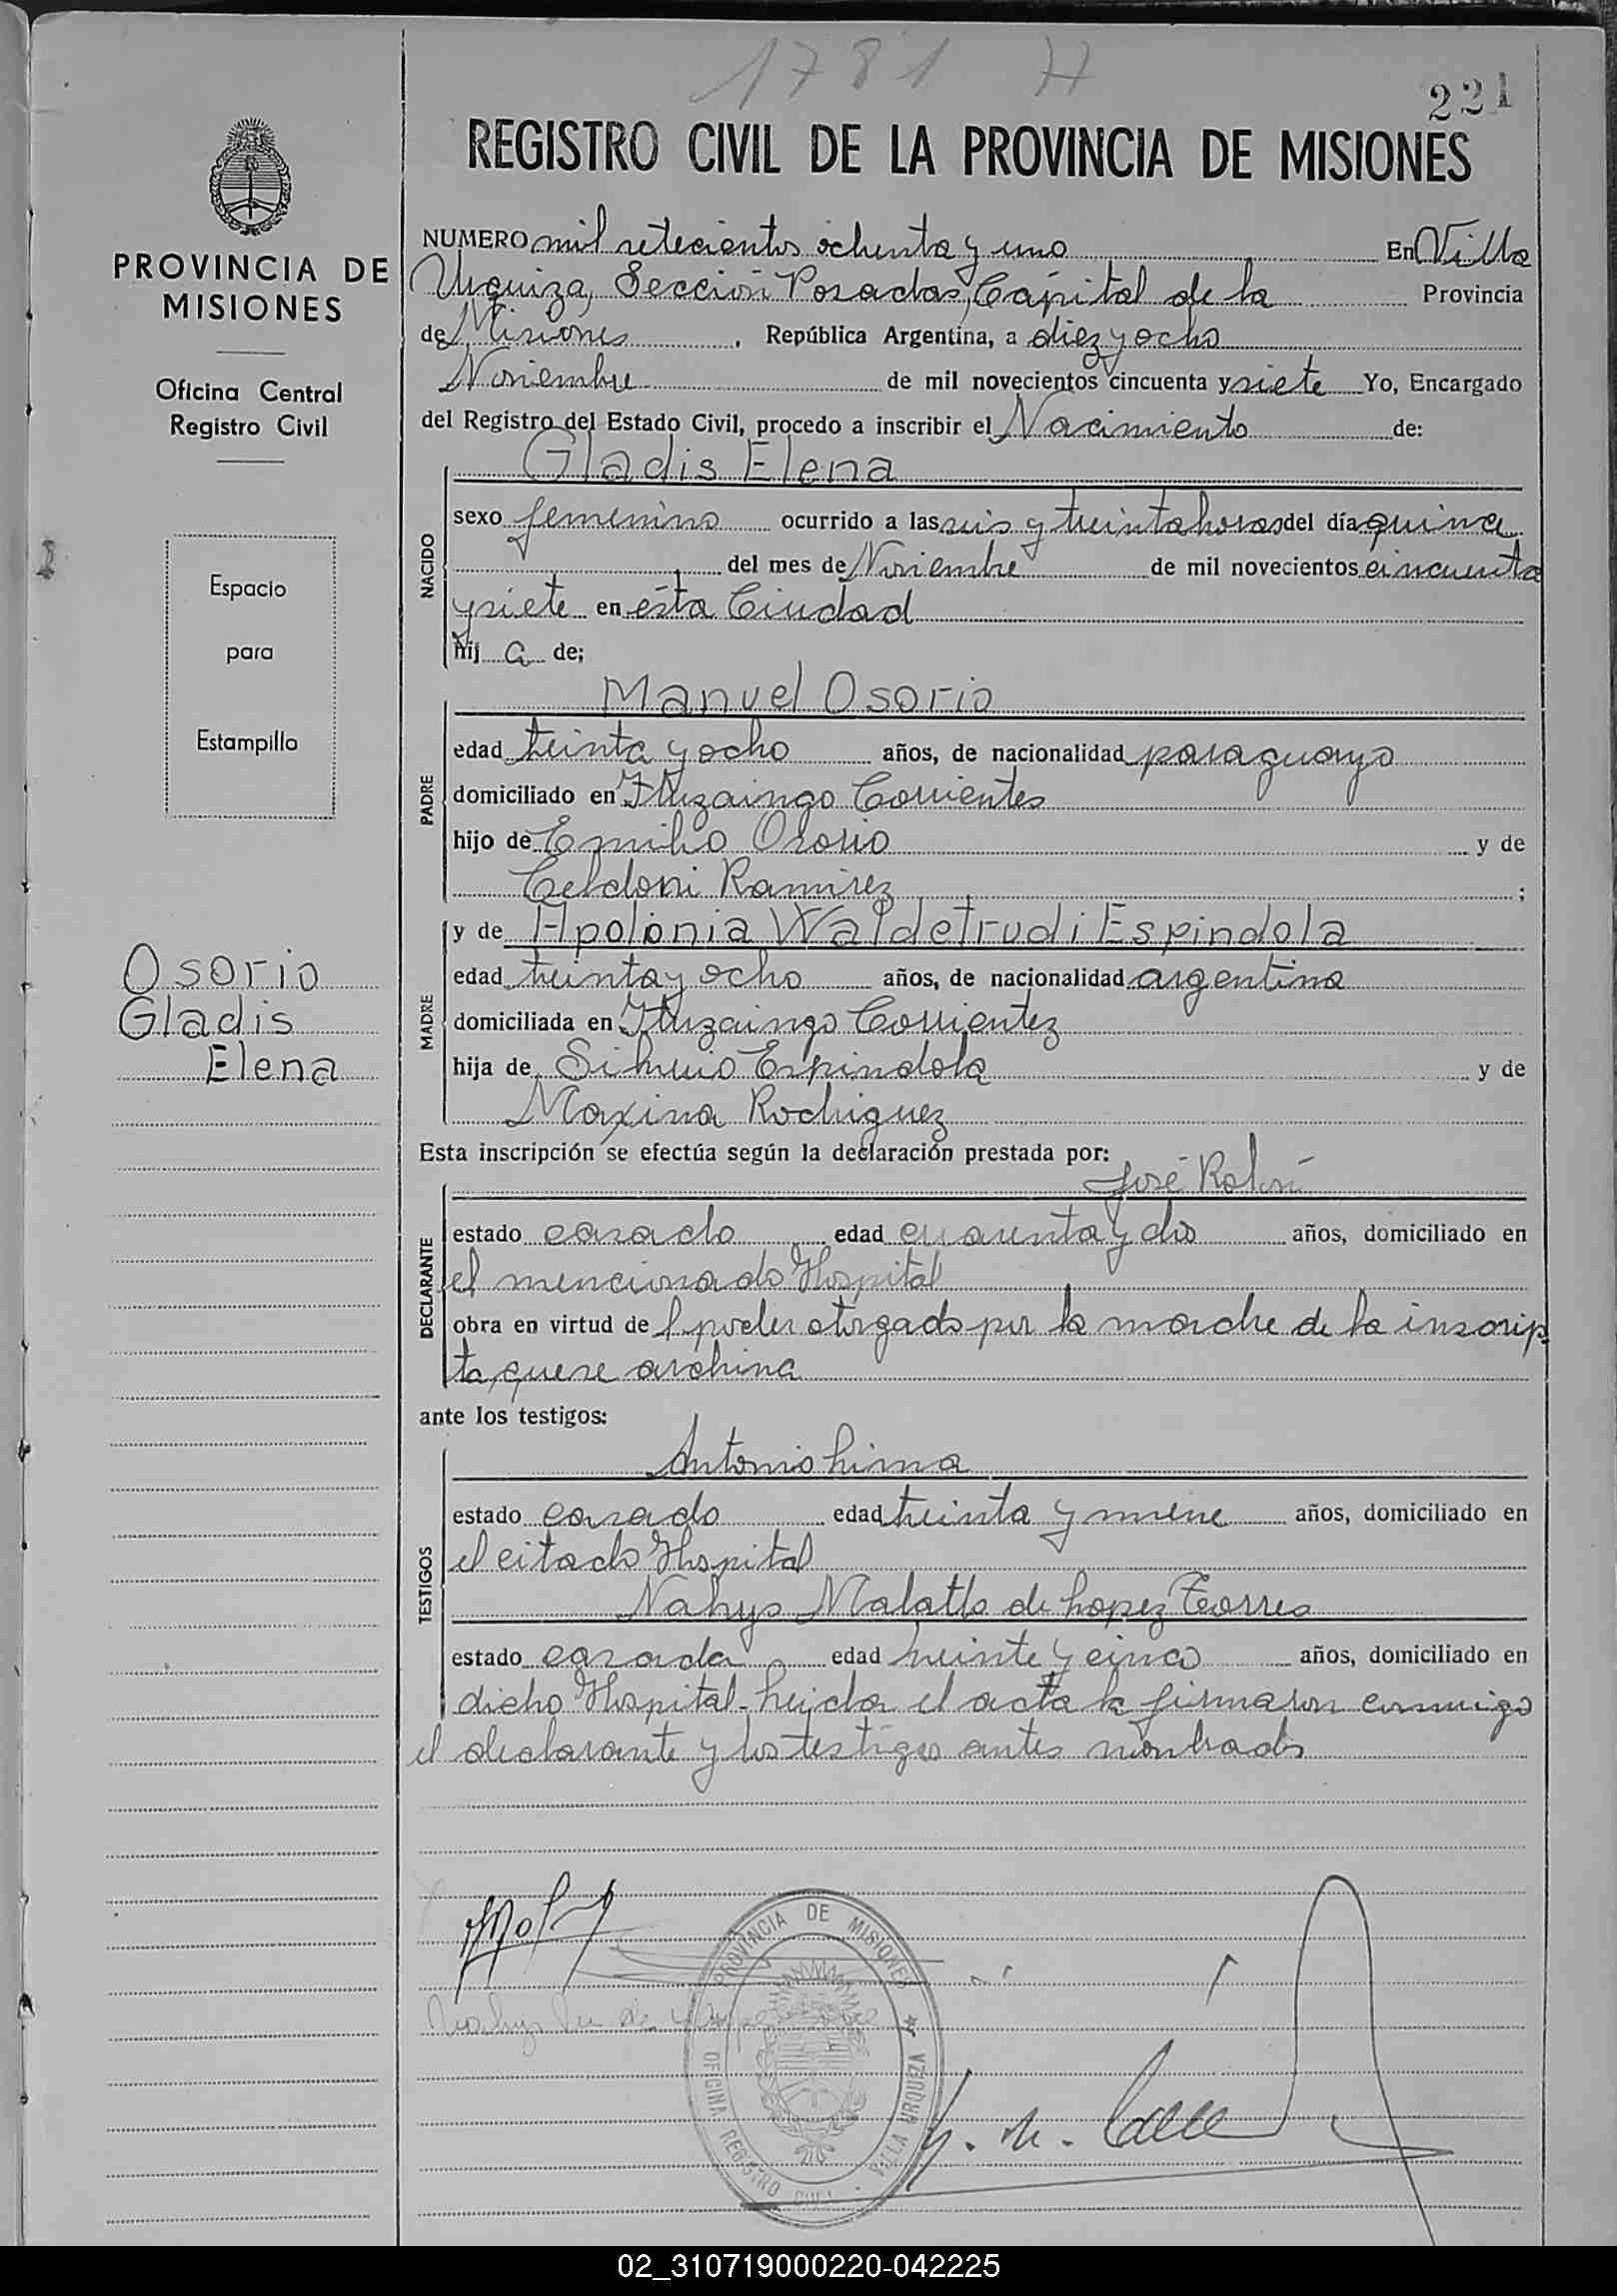 1781 H
221
REGISTRO CIVIL DE LA PROVINCIA DE MISIONES
PROVINCIA DE
MISIONES
Oficina Central
Registro Civil
Espacio
para
Estampilla
Osorio
Gladis
Elena
NUMERO mil setecientos ochenta y uno En Villa
Urquiza, Sección Posadas, Capital de la Provincia
de Misiones, República Argentina, a diez y ocho
Noviembre de mil novecientos cincuenta y siete Yo, Encargado
del Registro del Estado Civil, procedo a inscribir el Nacimiento de:
NACIDO
Gladis Elena
sexo femenino ocurrido a las seis y treinta horas del día quince
del mes de Noviembre de mil novecientos cincuenta
y siete en ésta Ciudad
hij a de;
PADRE
Manuel Osorio
edad treinta y ocho años, de nacionalidad paraguayo
domiciliado en Ituzaingo Corrientes
hijo de Emilio Osorio y de
Celdoni Ramirez ;
MADRE
y de Apolonia Waldetrudi Espindola
edad treinta y ocho años, de nacionalidad argentina
domiciliada en Ituzaingo Corrientez
hija de Silverio Espindola y de
Maxima Rodriguez
Esta inscripción se efectúa según la declaración prestada por:
DECLARANTE
José Rolón
estado casado edad cuarenta y dos años, domiciliado en
el mencionado Hospital
obra en virtud de l poder otorgado por la madre de la inscrip
ta, que se archiva
ante los testigos:
TESTIGOS
Antonio Lima
estado casado edad treinta y nueve años, domiciliado en
el citado Hospital
Nahyo Malatto de Lopez Torres
estado casada edad veinte y cinco años, domiciliado en
dicho Hospital - Leída el acta la firmaron conmigo
el declarante y los testigos antes nombrados
PROVINCIA DE MISIONES
OFICINA REGISTRO CIVIL VILLA URQUIZA
02_310719000220-042225